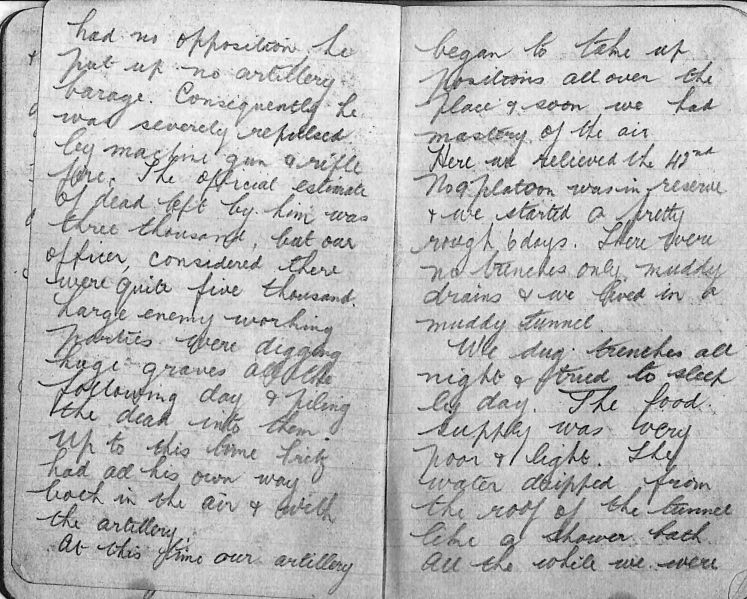 had no opposition, he
put up no artillery
barage. Consequently he
was severely repulsed
by machine gun & rifle
fire. The official estimate
of dead left by him was
three thousand, but our
officer, considered there
were quite five thousand.
Large enemy working
parties were digging
huge graves all the
following day & piling
the dead into them.
Up to this time fritz
had all his own way
both in the air & with
the artillery.
At this time our artillery
began to take up
positions all over the
place & soon we had
mastery of the air
Here we relieved the 42nd
No 9 platoon was in reserve
& we started a pretty
rough 6 days. There were
no trenches only muddy
drains & we lived in a
muddy tunnel.
We dug trenches all
night & tried to sleep
by day. The food
supply was very
poor & light. The
water dripped from
the roof of the tunnel
like a shower bath
All the while we were